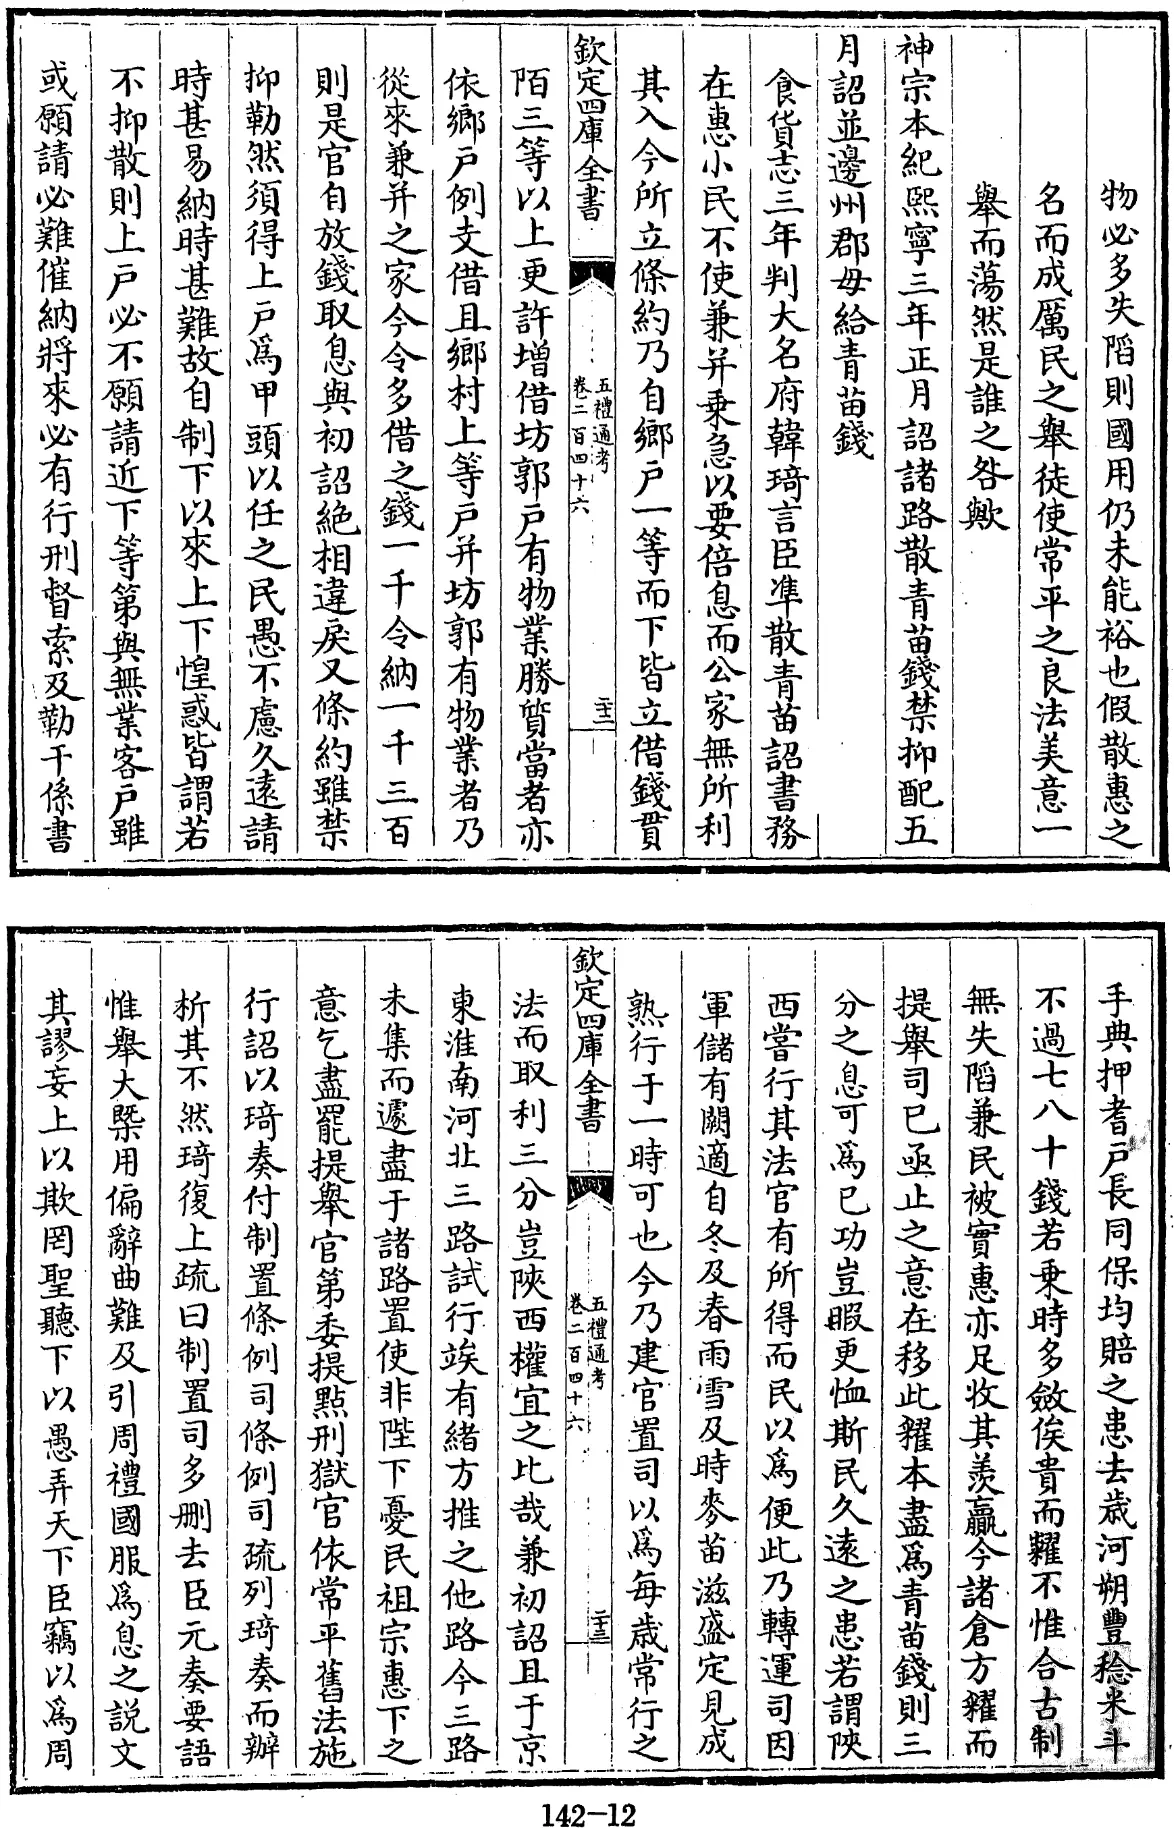 物必多失陷則國用仍未能裕也假散惠之
名而成厲民之舉徒使常平之良法美意一
舉而蕩然是誰之咎歟
神宗本紀熙寧三年正月詔諸路散青苗錢禁抑配五
月詔並邊州郡毋給青苗錢
食貨志三年判大名府韓琦言臣準散青苗詔書務
在惠小民不使兼并乗急以要倍息而公家無所利
其入今所立條約乃自鄉户一等而下皆立借錢貫
欽定四庫全書
五禮通考
卷二百四十六
二十二
陌三等以上更許增借坊郭户有物業勝質當者亦
依鄉户例支借且鄉村上等户并坊郭有物業者乃
從來兼并之家今令多借之錢一千令納一千三百
則是官自放錢取息與初詔絶相違戾又條約雖禁
抑勒然須得上户為甲頭以任之民愚不慮久遠請
時甚易納時甚難故自制下以來上下惶惑皆謂若
不抑散則上户必不願請近下等第與無業客户雖
或願請必難催納將來必有行刑督索及勒干係書
手典押耆户長同保均賠之患去歲河朔豐稔米斗
不過七八十錢若乗時多斂俟貴而糶不惟合古制
無失陷兼民被實惠亦足收其羨贏今諸倉方糴而
提舉司已亟止之意在移此糴本盡為青苗錢則三
分之息可為已功豈暇更恤斯民久遠之患若謂陜
西嘗行其法官有所得而民以為便此乃轉運司因
軍儲有闕適自冬及春雨雪及時麥苗滋盛定見成
熟行于一時可也今乃建官置司以為每歲常行之
欽定四庫全書
五禮通考
卷二百四十六
二十三
法而取利三分豈陜西權宜之比哉兼初詔且于京
東淮南河北三路試行竢有緒方推之他路今三路
未集而遽盡于諸路置使非陛下憂民祖宗惠下之
意乞盡罷提舉官第委提點刑獄官依常平舊法施
行詔以琦奏付制置條例司條例司疏列琦奏而辦
析其不然琦復上疏曰制置司多刪去臣元奏要語
惟舉大槩用偏辭曲難及引周禮國服為息之説文
其謬妄上以欺罔聖聽下以愚弄天下臣竊以為周
142-12